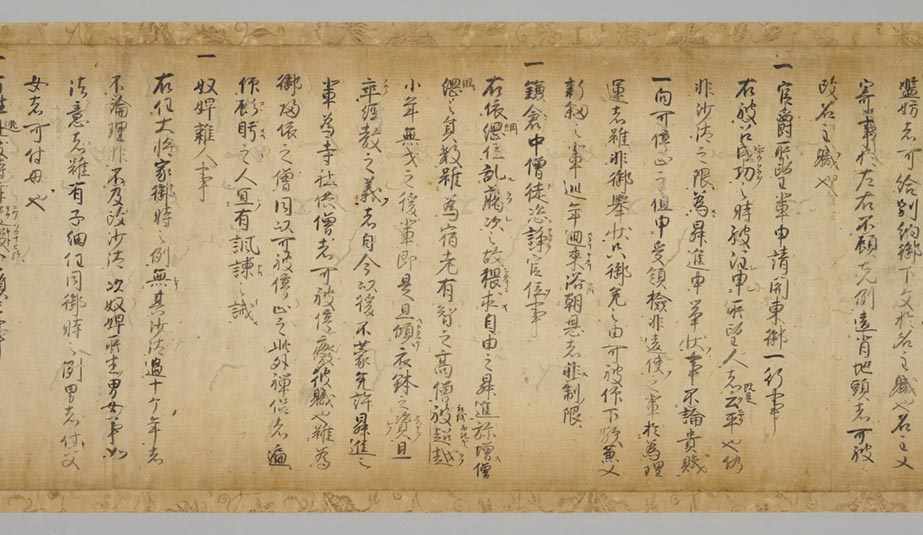 濫妨者可給別納御下文於名主職也名主又
寄事於左右不顧先例違背地頭者可被
改名主職也
一官爵所望輩申請関東御一行事
右被召成功之時被注申所望人者既是公平也仍
非沙汰之限為昇進申挙状事不論貴賤
一向可停止之但申受領検非違使之輩於為理
運者雖非御挙状只御免之由可被仰下歟兼又
新叙之輩巡年廻来浴朝恩者非制限
一鎌倉中僧徒恣諍官位事
右依綱位乱臈次之故猥求自由之昇進弥増僧
綱之員数雖為宿老有智之高僧被超越
小年無才之後輩即是且傾衣鉢之資且
乖経教之義者自今以後不蒙免許昇進之
輩為寺社供僧者可被停廃彼職也雖為
御帰依之僧同以可被停止之此外禅侶者遍
仰顧眄之人宜有諷諫之誡
一奴婢雑人事
右任大将家御時之例無其沙汰過十ケ年者
不論理非不及改沙汰次奴婢所生男女事如
法意者雖有子細任同御時之例男者付父
女者可付母也